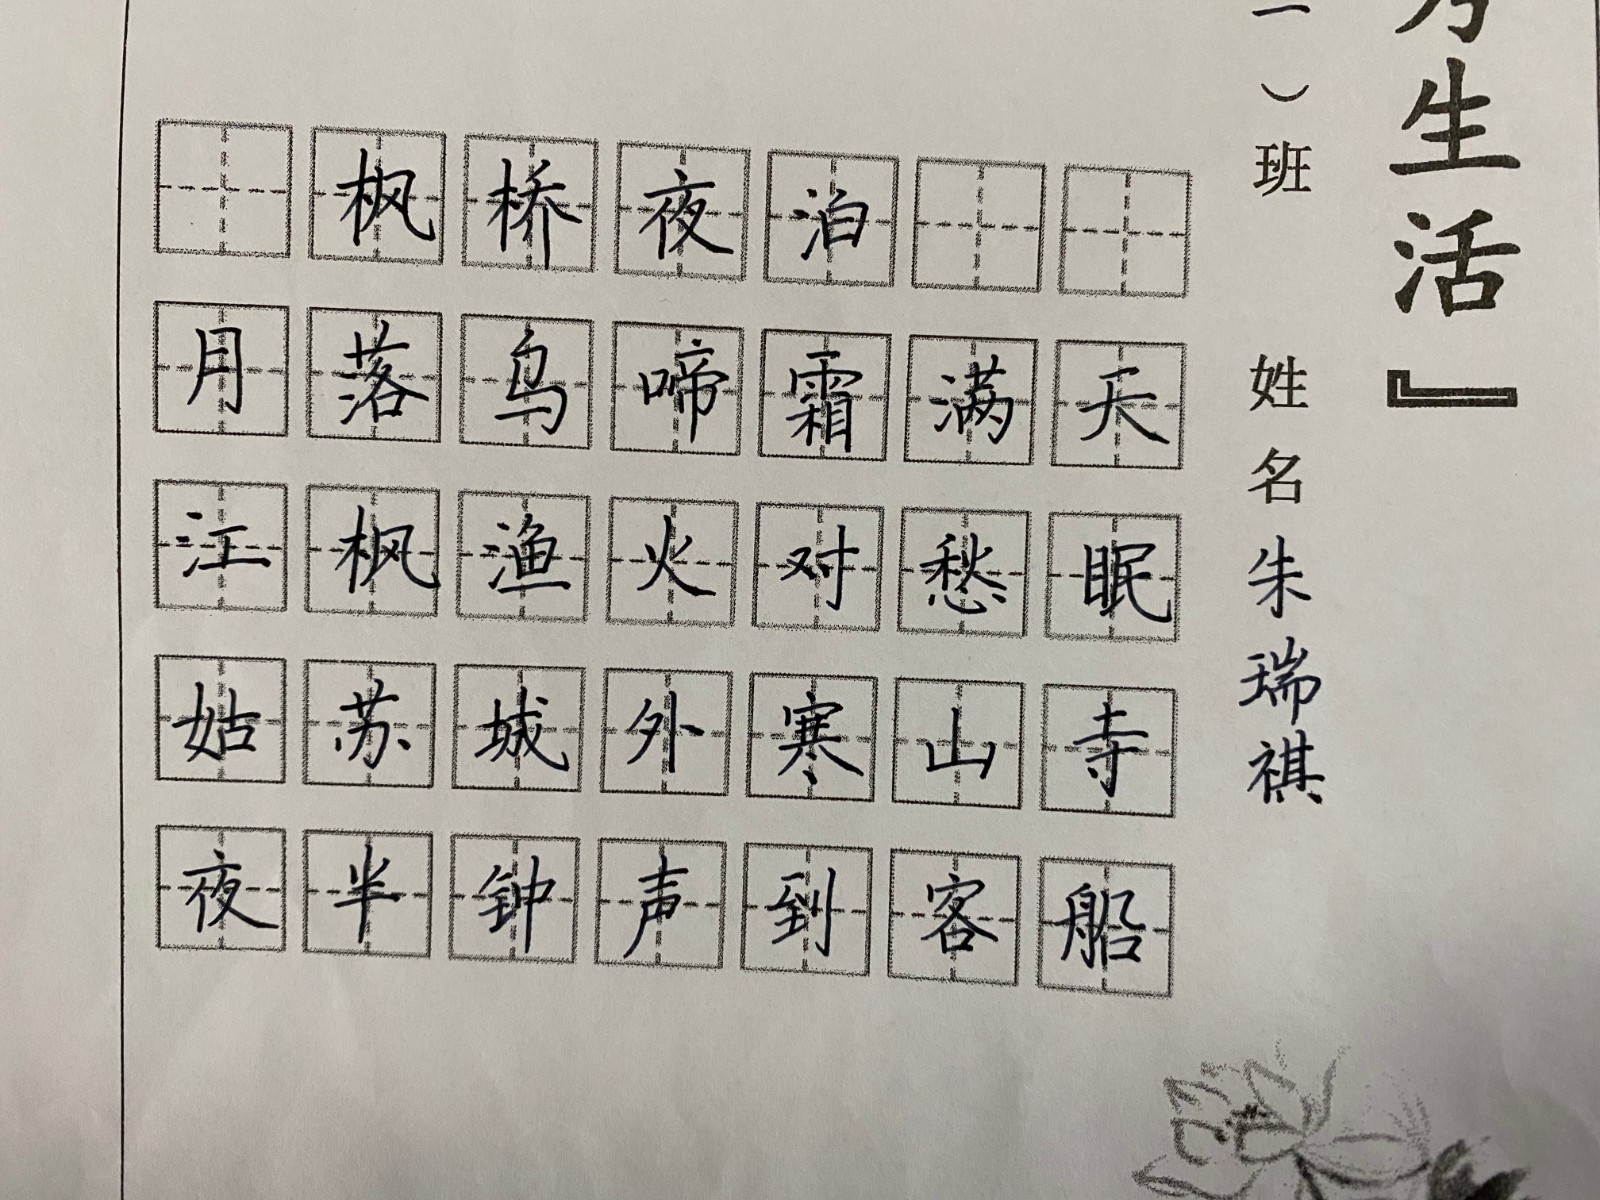 枫桥夜泊
月落乌啼霜满天
江枫渔火对愁眠
姑苏城外寒山寺
夜半钟声到客船
一）班 姓名朱瑞祺
生活』